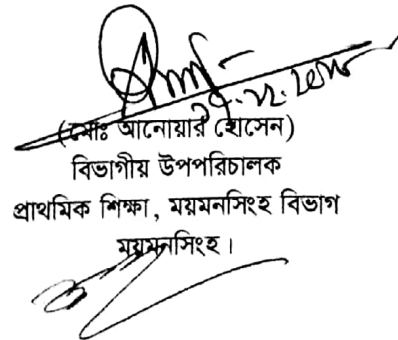 (মোঃ আনোয়ার হোসেন)
বিভাগীয় উপপরিচালক
প্রাথমিক শিক্ষা, ময়মনসিংহ বিভাগ
ময়মনসিংহ।